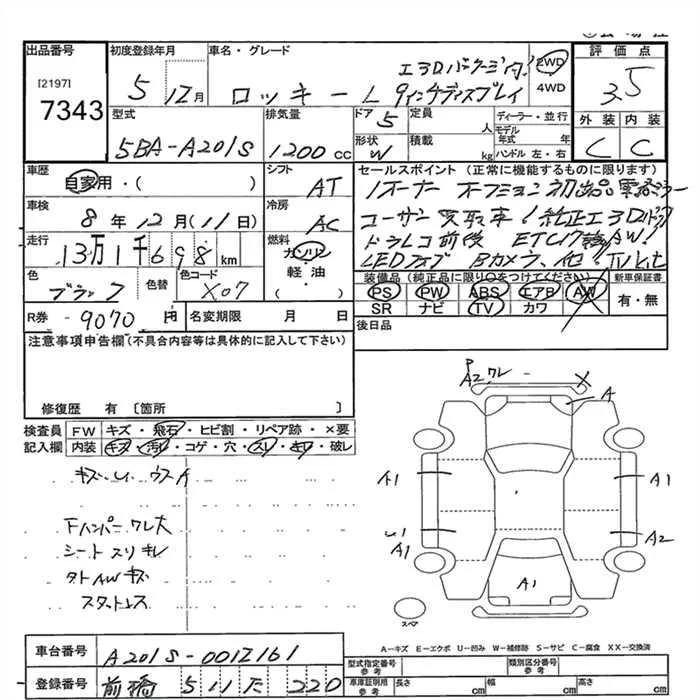 出品番号 初度登録年月 車名・グレード 評価点
[2197]
7343
5年 12月 ロッキー L 9インチディスプレイ 2WD 4WD 3.5
型式 排気量 ドア 定員 ディーラー・並行 外装 内装
5BA-A201S 1200cc 5 人 モデル年式 年 C C
形状 積載 W kg ハンドル 左・右
車歴 シフト セールスポイント(正常に機能するものに限ります)
自家用・( ) AT
車検 冷房
8年12月(11日) AC
走行 燃料 ドラレコ前後 ETC
13万1千698km ガソリン Bカメラ、他!
色 色替 色コード 軽・油 装備品(純正品に限り○をつけてください) 新車保証書
ブラック X07 ( ) PS PW ABS エアB AW 有・無
SR ナビ TV カワ
R券 -9070円 名変期限 月 日 後日品
注意事項申告欄(不具合内容等は具体的に記入して下さい)
修復歴 有 〔箇所 〕
検査員記入欄 FW キズ・飛石・ヒビ割・リペア跡・×要
内装 キズ・汚レ・コゲ・穴・スレ・キレ・破レ
P
A2 ワレ X
A
A1 A1
Fバンパーワレ大
シートスリキレ
タトAWキズ
スタットレス
A1 A2
A1
スペア
A-キズ E-エクボ U-凹み W-補修跡 S-サビ C-腐食 XX-交換済
車台番号 A201S-0012161 型式指定番号 参考 類別区分番号 参考
登録番号 前橋 511 た 220 車庫証明用 参考 長さ cm 幅 cm 高さ cm